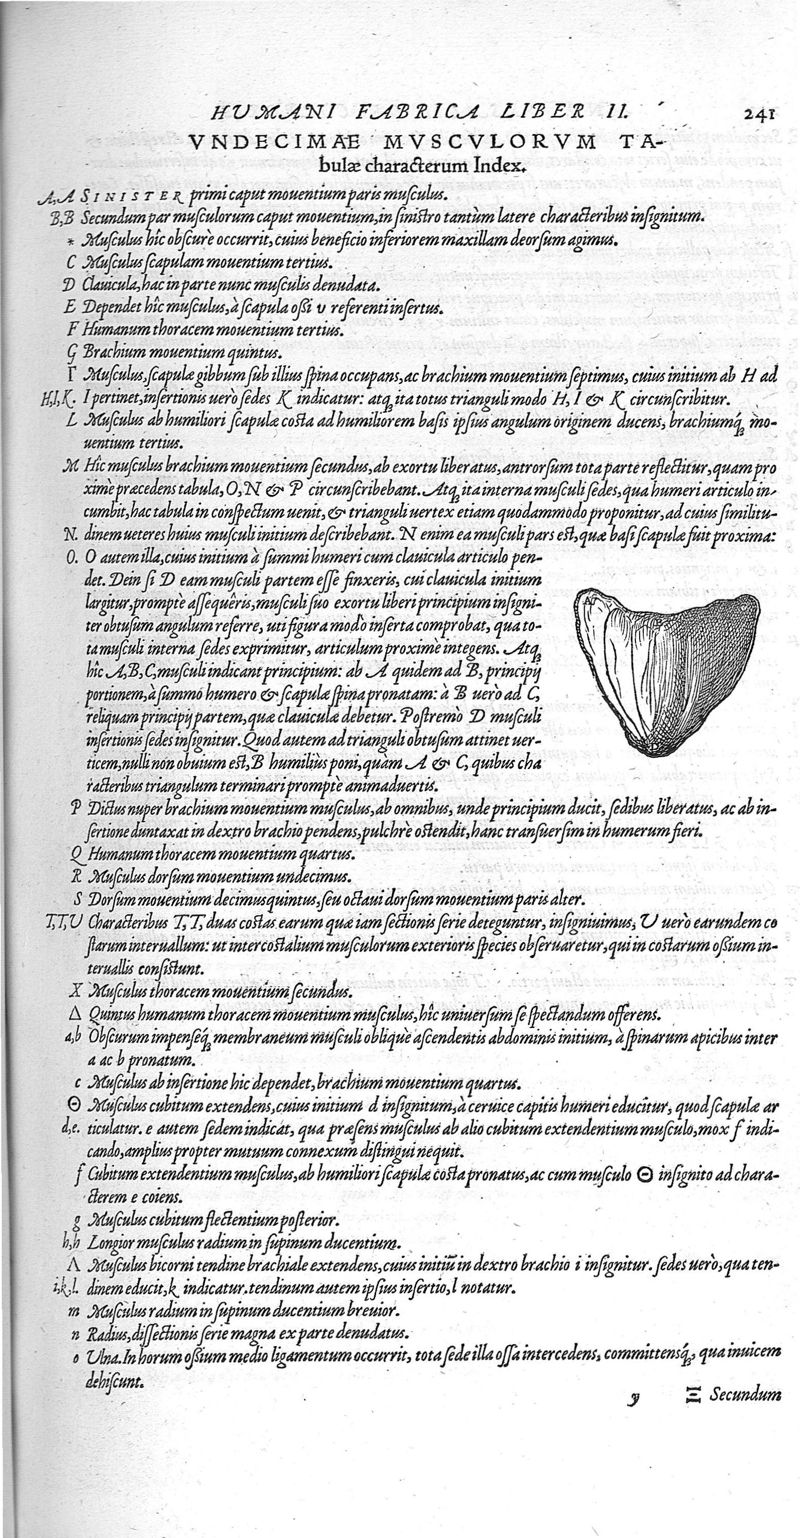 HUMANI FABRICA LIBER II. 241
VNDECIMAE MVSCVLORVM TA-
bulæ characterum Index.
A,A SINISTER primi caput mouentium paris musculus.
B,B Secundum par musculorum caput mouentium, in sinistro tantùm latere characteribus insignitum.
* Musculus hîc obscurè occurrit, cuius beneficio inferiorem maxillam deorsum agimus.
C Musculus scapulam mouentium tertius.
D Clauicula, hac in parte nunc musculis denudata.
E Dependet hîc musculus, à scapula ossi υ referenti insertus.
F Humanum thoracem mouentium tertius.
G Brachium mouentium quintus.
Γ Musculus, scapulæ gibbum sub illius spina occupans, ac brachium mouentium septimus, cuius initium ab H ad
H,I,K. I pertinet, insertionis uerò sedes K indicatur: atq; ita totus trianguli modo H, I & K circunscribitur.
L Musculus ab humiliori scapulæ costa ad humiliorem basis ipsius angulum originem ducens, brachiumq́; mo-
uentium tertius.
M Hîc musculus brachium mouentium secundus, ab exortu liberatus, antrorsum tota parte reflectitur, quam pro
ximè præcedens tabula, O, N & P circunscribebant. Atq; ita interna musculi sedes, qua humeri articulo in-
cumbit, hac tabula in conspectum uenit, & trianguli uertex etiam quodammodo proponitur, ad cuius similitu-
N. dinem ueteres huius musculi initium describebant. N enim ea musculi pars est, quæ basi scapulæ fuit proxima:
O. O autem illa, cuius initium à summi humeri cum clauicula articulo pen-
det. Dein si D eam musculi partem esse finxeris, cui clauicula initium
largitur, promptè assequêris, musculi suo exortu liberi principium insigni-
ter obtusum angulum referre, uti figura modò inserta comprobat, qua to-
ta musculi interna sedes exprimitur, articulum proximè integens. Atq;
hîc A, B, C, musculi indicant principium: ab A quidem ad B, principij
portionem, à summo humero & scapulæ spina pronatam: à B uerò ad C,
reliquam principij partem, quæ clauiculæ debetur. Postremò D musculi
insertionis sedes insignitur. Quod autem ad trianguli obtusum attinet uer-
ticem, nulli non obuium est, B humilius poni, quàm A & C, quibus cha
racteribus triangulum terminari promptè animaduertis.
P Dictus nuper brachium mouentium musculus, ab omnibus, unde principium ducit, sedibus liberatus, ac ab in-
sertione duntaxat in dextro brachio pendens, pulchrè ostendit, hanc transuersim in humerum fieri.
Q Humanum thoracem mouentium quartus.
R Musculus dorsum mouentium undecimus.
S Dorsum mouentium decimusquintus, seu octaui dorsum mouentium paris alter.
T,T,U Characteribus T, T, duas costas earum quæ iam sectionis serie deteguntur, insigniuimus, U uerò earundem co
starum interuallum: ut intercostalium musculorum exterioris species obseruaretur, qui in costarum ossium in-
teruallis consistunt.
X Musculus thoracem mouentium secundus.
Δ Quintus humanum thoracem mouentium musculus, hîc uniuersum se spectandum offerens.
a,b Obscurum impenseq́; membraneum musculi obliquè ascendentis abdominis initium, à spinarum apicibus inter
a ac b pronatum.
c Musculus ab insertione hic dependet, brachium mouentium quartus.
Θ Musculus cubitum extendens, cuius initium d insignitum, à ceruice capitis humeri educitur, quod scapulæ ar
d,e. ticulatur. e autem sedem indicat, qua præsens musculus ab alio cubitum extendentium musculo, mox f indi-
cando, amplius propter mutuum connexum distingui nequit.
f Cubitum extendentium musculus, ab humiliori scapulæ costa pronatus, ac cum musculo Θ insignito ad chara-
cterem e coiens.
g Musculus cubitum flectentium posterior.
h,h Longior musculus radium in supinum ducentium.
Λ Musculus bicorni tendine brachiale extendens, cuius initiũ in dextro brachio i insignitur. sedes uerò, qua ten-
i,k,l. dinem educit, k indicatur. tendinum autem ipsius insertio, l notatur.
m Musculus radium in supinum ducentium breuior.
n Radius, dissectionis serie magna ex parte denudatus.
o Ulna. In horum ossium medio ligamentum occurrit, tota sede illa ossa intercedens, committensq́;, qua inuicem
dehiscunt.
y Ξ Secundum